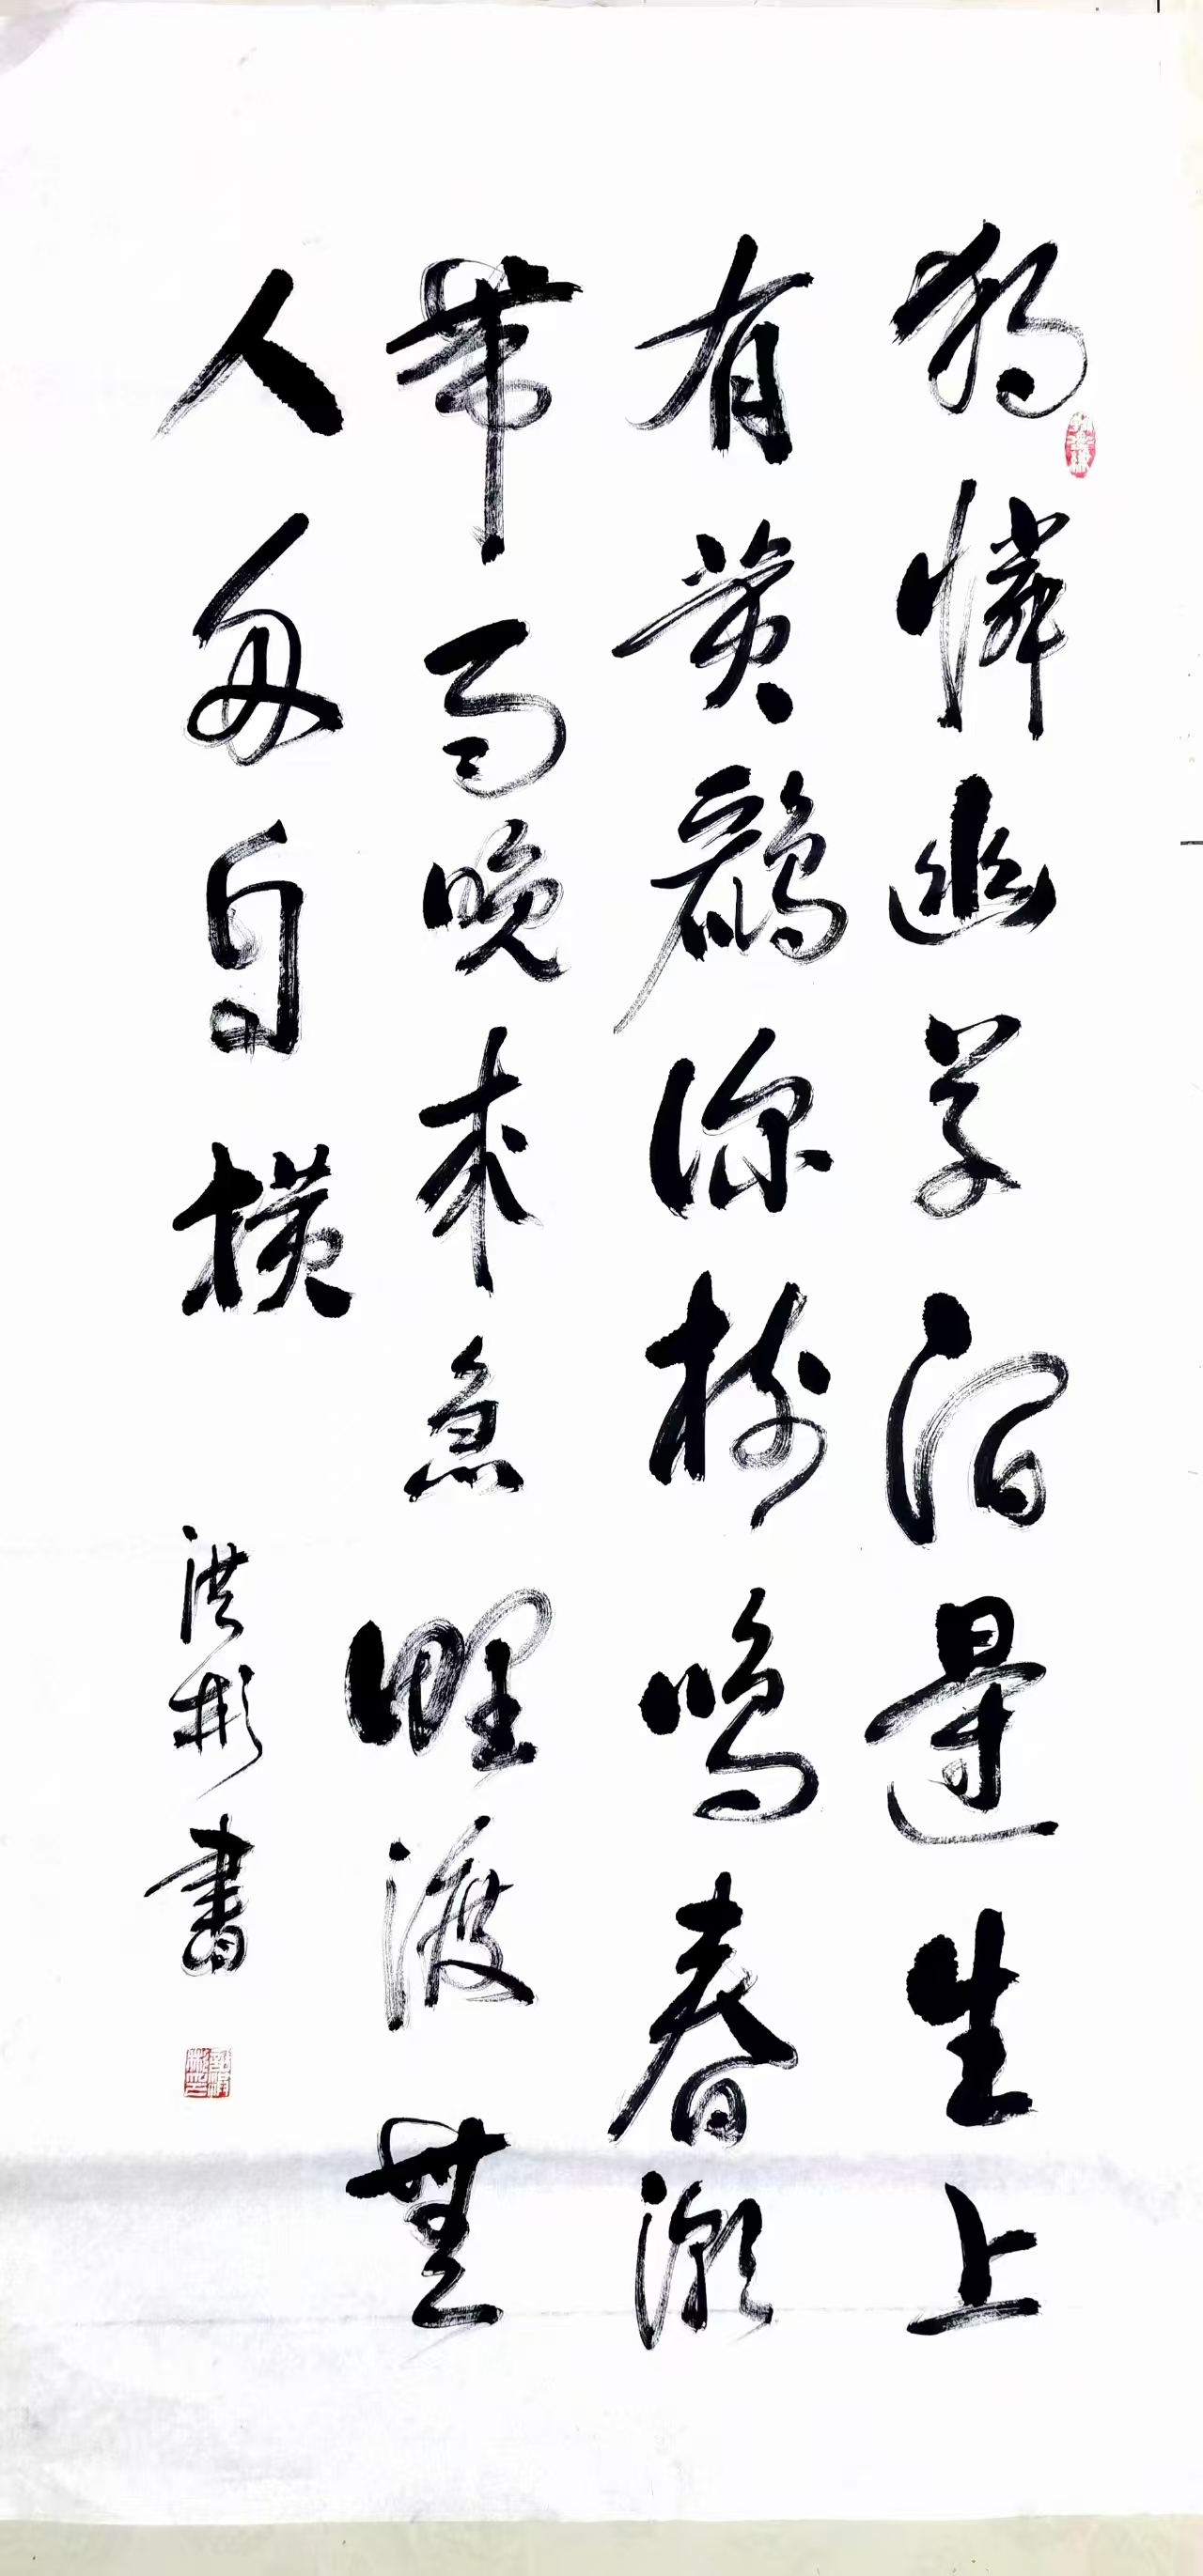 獨憐幽草澗邊生上
有黄鸝深樹鳴春潮
帶雨晚来急野渡無
人舟自横
洪彬書